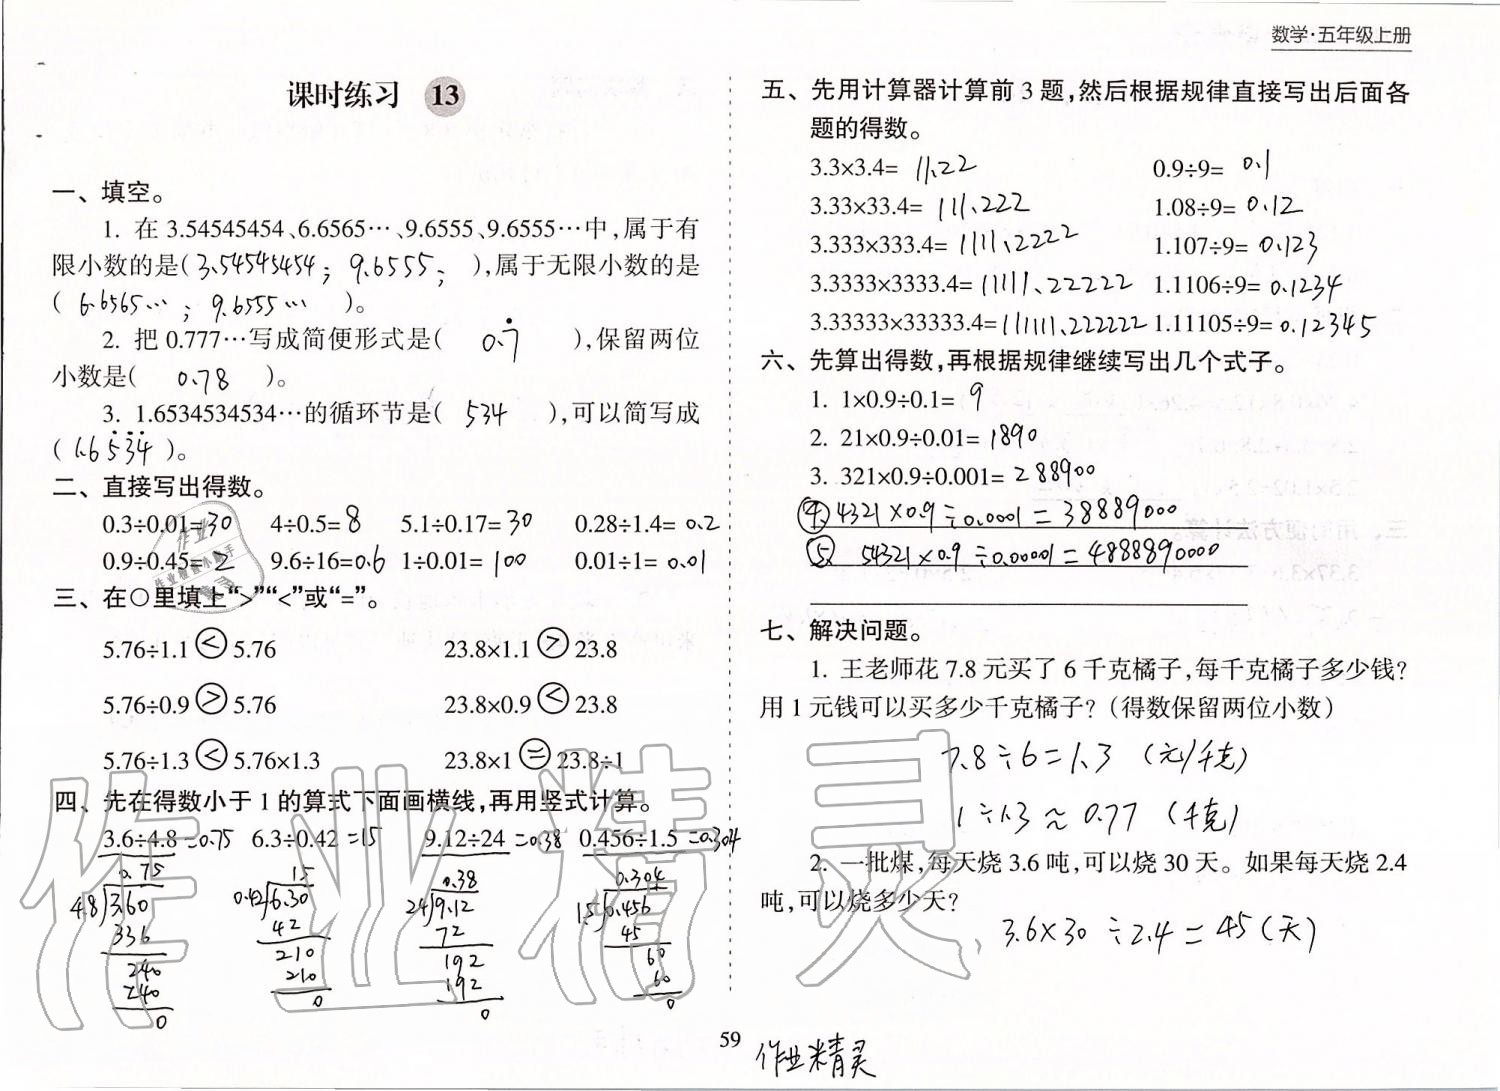 数学·五年级上册
课时练习 13
一、填空。
1. 在 3.54545454、6.6565…、9.6555、9.6555…中,属于有
限小数的是( 3.54545454; 9.6555; ),属于无限小数的是
( 6.6565… ; 9.6555… )。
2. 把 0.777…写成简便形式是( 0.7̇ ),保留两位
小数是( 0.78 )。
3. 1.6534534534…的循环节是( 534 ),可以简写成
( 1.65̇3̇4̇ )。
二、直接写出得数。
0.3÷0.01=30 4÷0.5=8 5.1÷0.17=30 0.28÷1.4=0.2
0.9÷0.45=2 9.6÷16=0.6 1÷0.01=100 0.01÷1=0.01
三、在○里填上“>”“<”或“=”。
5.76÷1.1 < 5.76 23.8×1.1 > 23.8
5.76÷0.9 > 5.76 23.8×0.9 < 23.8
5.76÷1.3 < 5.76×1.3 23.8×1 = 23.8÷1
四、先在得数小于 1 的算式下面画横线,再用竖式计算。
3.6÷4.8=0.75 6.3÷0.42=15 9.12÷24=0.38 0.456÷1.5=0.304
0.75 15 0.38 0.304
4.8 3.60 0.42 6.30 24 9.12 1.5 0.456
336 42 72 45
240 210 192 60
240 210 192 60
0 0 0 0
五、先用计算器计算前 3 题,然后根据规律直接写出后面各
题的得数。
3.3×3.4= 11.22 0.9÷9= 0.1
3.33×33.4= 111.222 1.08÷9= 0.12
3.333×333.4= 1111.2222 1.107÷9= 0.123
3.3333×3333.4= 11111.22222 1.1106÷9= 0.1234
3.33333×33333.4= 111111.222222 1.11105÷9= 0.12345
六、先算出得数,再根据规律继续写出几个式子。
1. 1×0.9÷0.1= 9
2. 21×0.9÷0.01= 1890
3. 321×0.9÷0.001= 288900
④ 4321×0.9÷0.0001=38889000
⑤ 54321×0.9÷0.00001=4888890000
七、解决问题。
1. 王老师花 7.8 元买了 6 千克橘子,每千克橘子多少钱?
用 1 元钱可以买多少千克橘子?(得数保留两位小数)
7.8÷6=1.3 (元/千克)
1÷1.3≈0.77 (千克)
2. 一批煤,每天烧 3.6 吨,可以烧 30 天。如果每天烧 2.4
吨,可以烧多少天?
3.6×30÷2.4=45(天)
59
作业精灵
作业精灵